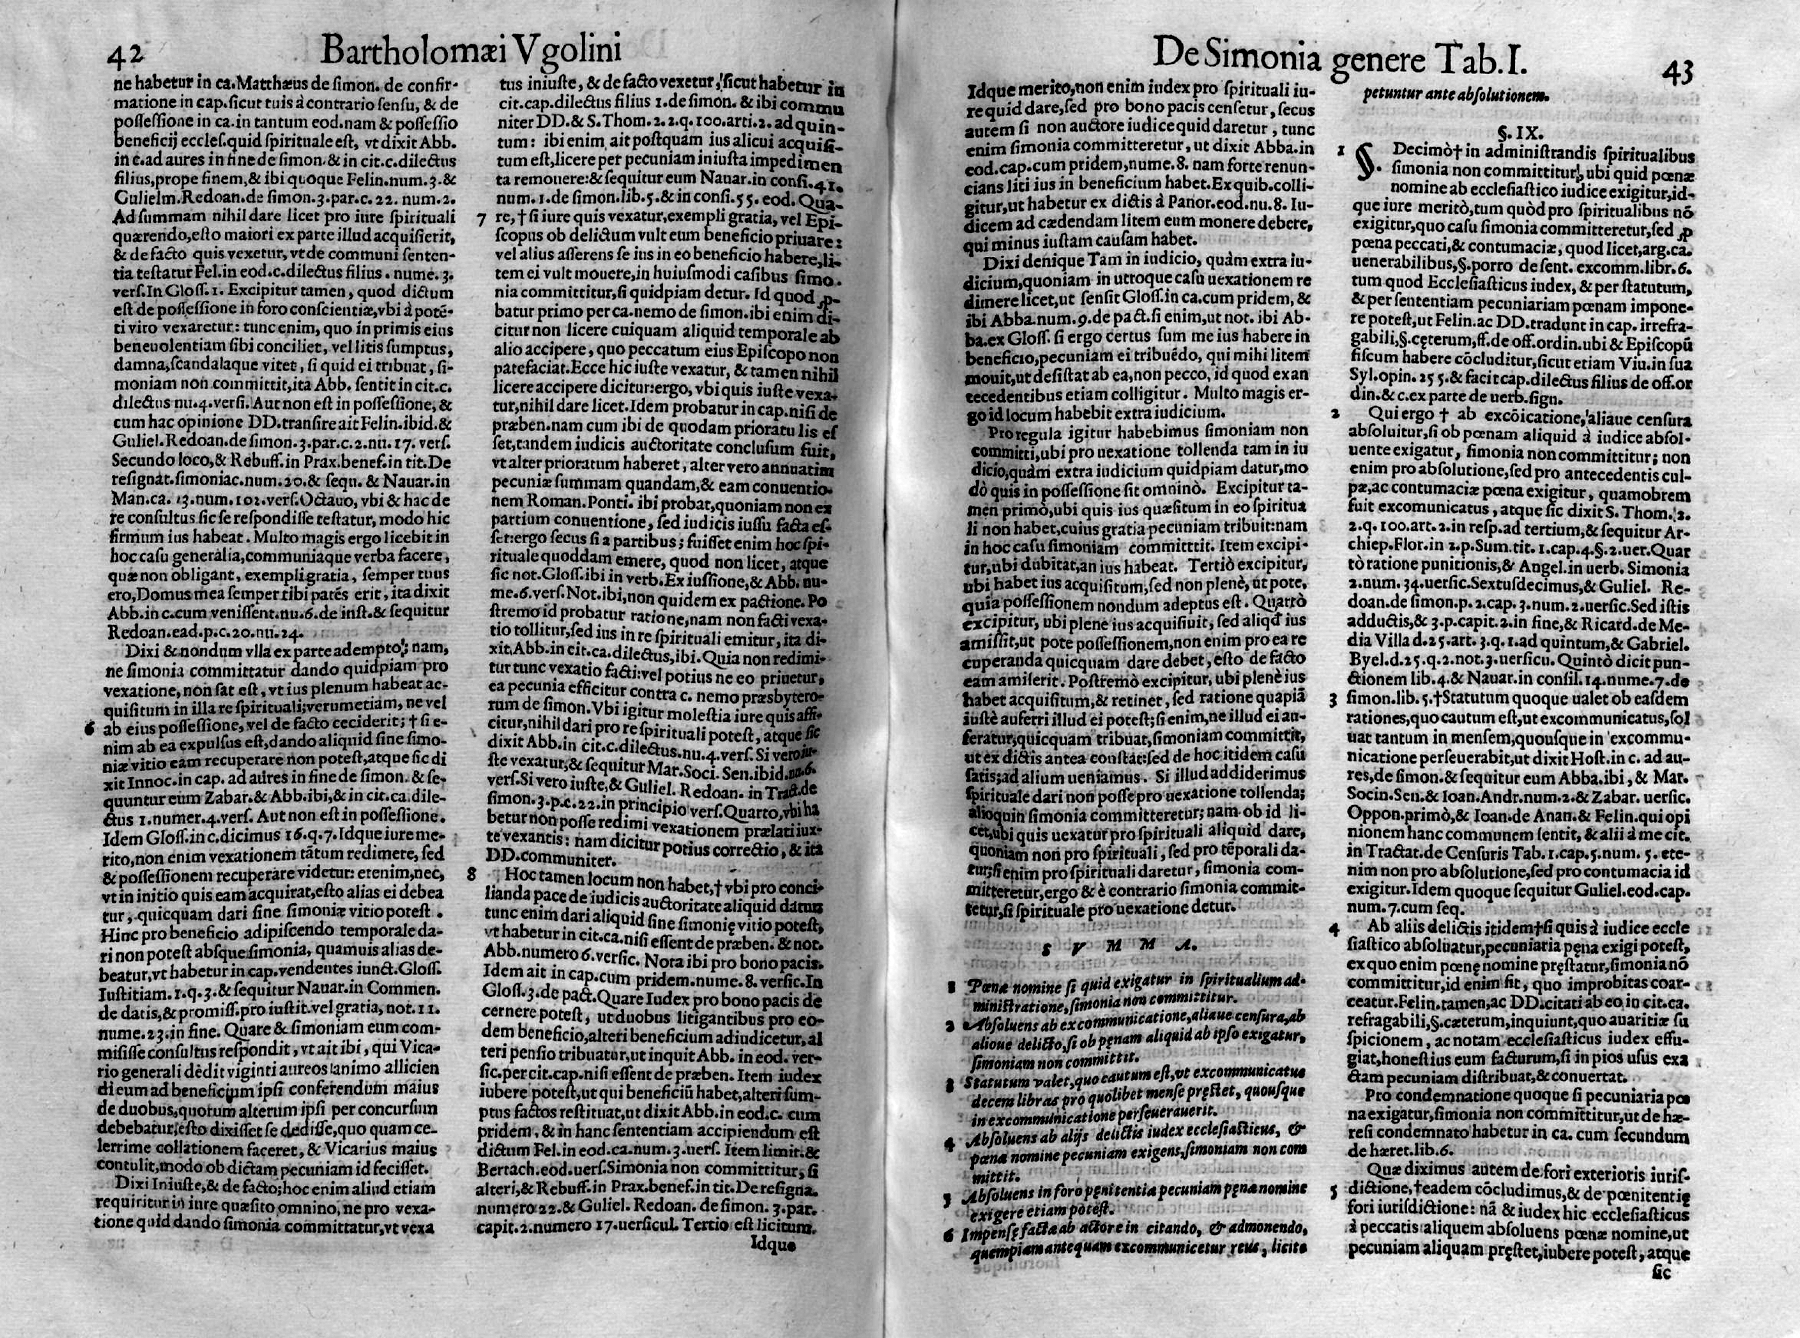 42
Bartholomæi Vgolini
ne habetur in ca. Matthæus de simon. de confir-
matione in cap. sicut tuis à contrario sensu, & de
possessione in ca. in tantum eod. nam & possessio
beneficij eccles. quid spirituale est, vt dixit Abb.
in c. ad aures in fine de simon. & in cit. c. dilectus
filius, prope finem, & ibi quoque Felin. num. 3. &
Gulielm. Redoan. de simon. 3. par. c. 22. num. 2.
Ad summam nihil dare licet pro iure spirituali
quærendo, esto maiori ex parte illud acquisierit,
& de facto quis vexetur, vt de communi senten-
tia testatur Fel. in eod. c. dilectus filius. nume. 3.
vers. In Gloss. 1. Excipitur tamen, quod dictum
est de possessione in foro conscientiæ, vbi à potẽ-
ti viro vexaretur: tunc enim, quo in primis eius
beneuolentiam sibi conciliet, vel litis sumptus,
damna, scandalaque vitet, si quid ei tribuat, si-
moniam non committit, ità Abb. sentit in cit. c.
dilectus nu. 4. versi. Aut non est in possessione, &
cum hac opinione DD. transire ait Felin. ibid. &
Guliel. Redoan. de simon. 3. par. c. 2. nu. 17. vers.
Secundo loco, & Rebuff. in Prax. benef. in tit. De
resignat. simoniac. num. 20. & sequ. & Nauar. in
Man. ca. 13. num. 102. vers. Octauo, vbi & hac de
re consultus sic se respondisse testatur, modo hic
firmum ius habeat. Multo magis ergo licebit in
hoc casu generalia, communiaque verba facere,
quæ non obligant, exempli gratia, semper tuus
ero, Domus mea semper tibi patẽs erit, ita dixit
Abb. in c. cum venissent. nu. 6. de inst. & sequitur
Redoan. ead. p. c. 20. nu. 24.
Dixi & nondum vlla ex parte adempto; nam,
ne simonia committatur dando quidpiam pro
vexatione, non sat est, vt ius plenum habeat ac-
quisitum in illa re spirituali; verumetiam, ne vel
6 ab eius possessione, vel de facto ceciderit; † si e-
nim ab ea expulsus est, dando aliquid sine simo-
niæ vitio eam recuperare non potest, atque sic di
xit Innoc. in cap. ad aures in fine de simon. & se-
quuntur eum Zabar. & Abb. ibi, & in cit. ca. dile-
ctus 1. numer. 4. vers. Aut non est in possessione.
Idem Gloss. in c. dicimus 16. q. 7. Idque iure me-
rito, non enim vexationem tãtum redimere, sed
& possessionem recuperare videtur: etenim, nec,
vt in initio quis eam acquirat, esto alias ei debea
tur, quicquam dari sine simoniæ vitio potest.
Hinc pro beneficio adipiscendo temporale da-
ri non potest absque simonia, quamuis alias de-
beatur, vt habetur in cap. vendentes iunct. Gloss.
Iustitiam. 1. q. 3. & sequitur Nauar. in Commen.
de datis, & promiss. pro iustit. vel gratia, not. 11.
nume. 23. in fine. Quare & simoniam eum com-
misisse consultus respondit, vt ait ibi, qui Vica-
rio generali dedit viginti aureos animo allicien
di eum ad beneficium ipsi conferendum maius
de duobus, quorum alterum ipsi per concursum
debebatur; esto dixisset se dedisse, quo quam ce-
lerrime collationem faceret, & Vicarius maius
contulit, modo ob dictam pecuniam id fecisset.
Dixi Iniuste, & de facto; hoc enim aliud etiam
requiritur in iure quæsito omnino, ne pro vexa-
tione quid dando simonia committatur, vt vexa
tus iniuste, & de facto vexetur, sicut habetur in
cit. cap. dilectus filius 1. de simon. & ibi commu
niter DD. & S. Thom. 2. 2. q. 100. arti. 2. ad quin-
tum: ibi enim ait postquam ius alicui acquisi-
tum est, licere per pecuniam iniusta impedimen
ta remouere: & sequitur eum Nauar. in consi. 41.
num. 1. de simon. lib. 5. & in consi. 55. eod. Qua-
7 re, † si iure quis vexatur, exempli gratia, vel Epi-
scopus ob delictum vult eum beneficio priuare:
vel alius asserens se ius in eo beneficio habere, li-
tem ei vult mouere, in huiusmodi casibus simo-
nia committitur, si quidpiam detur. Id quod ꝓ-
batur primo per ca. nemo de simon. ibi enim di-
citur non licere cuiquam aliquid temporale ab
alio accipere, quo peccatum eius Episcopo non
patefaciat. Ecce hic iuste vexatur, & tamen nihil
licere accipere dicitur: ergo, vbi quis iuste vexa-
tur, nihil dare licet. Idem probatur in cap. nisi de
præben. nam cum ibi de quodam prioratu lis es
set, tandem iudicis auctoritate conclusum fuit,
vt alter prioratum haberet, alter vero annuatim
pecuniæ summam quandam, & eam conuentio-
nem Roman. Ponti. ibi probat, quoniam non ex
partium conuentione, sed iudicis iussu facta es-
set: ergo secus si a partibus; fuisset enim hoc spi-
rituale quoddam emere, quod non licet, atque
sic not. Gloss. ibi in verb. Ex iussione, & Abb. nu-
me. 6. vers. Not. ibi, non quidem ex pactione. Po
stremo id probatur ratione, nam non facti vexa-
tio tollitur, sed ius in re spirituali emitur, ita di-
xit, Abb. in cit. ca. dilectus, ibi. Quia non redimi-
tur tunc vexatio facti: vel potius ne eo priuetur,
ea pecunia efficitur contra c. nemo præsbytero-
rum de simon. Vbi igitur molestia iure quis affi-
citur, nihil dari pro re spirituali potest, atque sic
dixit Abb. in cit. c. dilectus. nu. 4. vers. Si vero iu-
ste vexatur, & sequitur Mar. Soci. Sen. ibid. nu. 6.
vers. Si vero iuste, & Guliel. Redoan. in Tract. de
simon. 3. p. c. 22. in principio vers. Quarto, vbi ha
betur non posse redimi vexationem prælati iux-
te vexantis: nam dicitur potius correctio, & ità
DD. communiter.
8 Hoc tamen locum non habet, † vbi pro conci-
lianda pace de iudicis auctoritate aliquid datur
tunc enim dari aliquid sine simonię vitio potest,
vt habetur in cit. ca. nisi essent de præben. & not.
Abb. numero 6. versic. Nota ibi pro bono pacis.
Idem ait in cap. cum pridem. nume. 8. versic. In
Gloss. 3. de pact. Quare Iudex pro bono pacis de
cernere potest, ut duobus litigantibus pro eo-
dem beneficio, alteri beneficium adiudicetur, al
teri pensio tribuatur, ut inquit Abb. in eod. ver-
sic. per cit. cap. nisi essent de præben. Item iudex
iubere potest, ut qui beneficiũ habet, alteri sum-
ptus factos restituat, ut dixit Abb. in eod. c. cum
pridem, & in hanc sententiam accipiendum est
dictum Fel. in eod. ca. num. 3. uers. Item limit. &
Bertach. eod. uers. Simonia non committitur, si
alteri, & Rebuff. in Prax. benef. in tit. De resigna.
numero 22. & Guliel. Redoan. de simon. 3. par.
capit. 2. numero 17. uersicul. Tertio est licitum.
Idque
De Simonia genere Tab. I.
43
Idque merito, non enim iudex pro spirituali iu-
re quid dare, sed pro bono pacis censetur, secus
autem si non auctore iudice quid daretur, tunc
enim simonia committeretur, ut dixit Abba. in
eod. cap. cum pridem, nume. 8. nam forte renun-
cians liti ius in beneficium habet. Ex quib. colli-
gitur, ut habetur ex dictis à Panor. eod. nu. 8. Iu-
dicem ad cædendam litem eum monere debere,
qui minus iustam causam habet.
Dixi denique Tam in iudicio, quàm extra iu-
dicium, quoniam in utroque casu uexationem re
dimere licet, ut sensit Gloss. in ca. cum pridem, &
ibi Abba. num. 9. de pact. si enim, ut not. ibi Ab-
ba. ex Gloss. si ergo certus sum me ius habere in
beneficio, pecuniam ei tribuẽdo, qui mihi litem
mouit, ut desistat ab ea, non pecco, id quod ex an
tecedentibus etiam colligitur. Multo magis er-
go id locum habebit extra iudicium.
Pro regula igitur habebimus simoniam non
committi, ubi pro uexatione tollenda tam in iu
dicio, quàm extra iudicium quidpiam datur, mo
dò quis in possessione sit omninò. Excipitur ta-
men primò, ubi quis ius quæsitum in eo spiritua
li non habet, cuius gratia pecuniam tribuit: nam
in hoc casu simoniam committit. Item excipi-
tur, ubi dubitat, an ius habeat. Tertiò excipitur,
ubi habet ius acquisitum, sed non plenè, ut pote,
quia possessionem nondum adeptus est. Quartò
excipitur, ubi plene ius acquisiuit, sed aliqđ ius
amissit, ut pote possessionem, non enim pro ea re
cuperanda quicquam dare debet, esto de facto
eam amiserit. Postremò excipitur, ubi plenè ius
habet acquisitum, & retinet, sed ratione quapiã
iustè auferri illud ei potest; si enim, ne illud ei au-
feratur, quicquam tribuat, simoniam committit,
ut ex dictis antea constat: sed de hoc itidem casu
satis; ad alium ueniamus. Si illud addiderimus
spirituale dari non posse pro uexatione tollenda;
alioquin simonia committeretur; nam ob id li-
cet, ubi quis uexatur pro spirituali aliquid dare,
quoniam non pro spirituali, sed pro tẽporali da-
tur; si enim pro spirituali daretur, simonia com-
mitteretur, ergo & è contrario simonia commit-
tetur, si spirituale pro uexatione detur.
SVMMA.
1 Pœnæ nomine si quid exigatur in spiritualium ad-
ministratione, simonia non committitur.
2 Absoluens ab excommunicatione, aliaue censura, ab
alioue delicto, si ob pęnam aliquid ab ipso exigatur,
simoniam non committit.
3 Statutum valet, quo cautum est, vt excommunicatus
decem libras pro quolibet mense pręstet, quousque
in excommunicatione perseuerauerit.
4 Absoluens ab alijs delictis iudex ecclesiasticus, &
pœnæ nomine pecuniam exigens, simoniam non com
mittit.
5 Absoluens in foro pęnitentia pecuniam pęnæ nomine
exigere etiam potest.
6 Impensę factæ ab actore in citando, & admonendo,
quempiam antequam excommunicetur reus, licite
petuntur ante absolutionem.
§. IX.
1 §. Decimò † in administrandis spiritualibus
simonia non committitur, ubi quid pœnæ
nomine ab ecclesiastico iudice exigitur, id-
que iure meritò, tum quòd pro spiritualibus nõ
exigitur, quo casu simonia committeretur, sed ꝓ
pœna peccati, & contumaciæ, quod licet, arg. ca.
uenerabilibus, §. porro de sent. excomm. libr. 6.
tum quod Ecclesiasticus iudex, & per statutum,
& per sententiam pecuniariam pœnam impone-
re potest, ut Felin. ac DD. tradunt in cap. irrefra-
gabili, §. cęterum, ff. de off. ordin. ubi & Episcopũ
fiscum habere cõcluditur, sicut etiam Viu. in sua
Syl. opin. 255. & facit cap. dilectus filius de off. or
din. & c. ex parte de uerb. sign.
2 Qui ergo † ab excõicatione, aliaue censura
absoluitur, si ob pœnam aliquid à iudice absol-
uente exigatur, simonia non committitur; non
enim pro absolutione, sed pro antecedentis cul-
pæ, ac contumaciæ pœna exigitur, quamobrem
fuit excomunicatus, atque sic dixit S. Thom. 2.
2. q. 100. art. 2. in resp. ad tertium, & sequitur Ar-
chiep. Flor. in 2. p. Sum. tit. 1. cap. 4. §. 2. uer. Quar
tò ratione punitionis, & Angel. in uerb. Simonia
2. num. 34. uersic. Sextusdecimus, & Guliel. Re-
doan. de simon. p. 2. cap. 3. num. 2. uersic. Sed istis
adductis, & 3. p. capit. 2. in fine, & Ricard. de Me-
dia Villa d. 25. art. 3. q. 1. ad quintum, & Gabriel.
Byel. d. 25. q. 2. not. 3. uersicu. Quintò dicit pun-
ctionem lib. 4. & Nauar. in consil. 14. nume. 7. de
3 simon. lib. 5. † Statutum quoque ualet ob easdem
rationes, quo cautum est, ut excommunicatus, sol
uat tantum in mensem, quousque in excommu-
nicatione perseuerabit, ut dixit Host. in c. ad au-
res, de simon. & sequitur eum Abba. ibi, & Mar.
Socin. Sen. & Ioan. Andr. num. 2. & Zabar. uersic.
Oppon. primò, & Ioan. de Anan. & Felin. qui opi
nionem hanc communem sentit, & alii à me cit.
in Tractat. de Censuris Tab. 1. cap. 5. num. 5. ete-
nim non pro absolutione, sed pro contumacia id
exigitur. Idem quoque sequitur Guliel. eod. cap.
num. 7. cum seq.
4 Ab aliis delictis itidem † si quis à iudice eccle
siastico absoluatur, pecuniaria pęna exigi potest,
ex quo enim pœnę nomine pręstatur, simonia nõ
committitur, id enim sit, quo improbitas coar-
ceatur. Felin. tamen, ac DD. citati ab eo, in cit. ca.
refragabili, §. cæterum, inquiunt, quo auaritiæ su
spicionem, ac notam ecclesiasticus iudex effu-
giat, honestius eum facturum, si in pios usus exa
ctam pecuniam distribuat, & conuertat.
Pro condemnatione quoque si pecuniaria pœ
na exigatur, simonia non committitur, ut de hæ-
resi condemnato habetur in ca. cum secundum
de hæret. lib. 6.
Quæ diximus autem de fori exterioris iuris-
5 dictione, † eadem cõcludimus, & de pœnitentię
fori iurisdictione: nã & iudex hic ecclesiasticus
à peccatis aliquem absoluens pœnæ nomine, ut
pecuniam aliquam pręstet, iubere potest, atque
sic